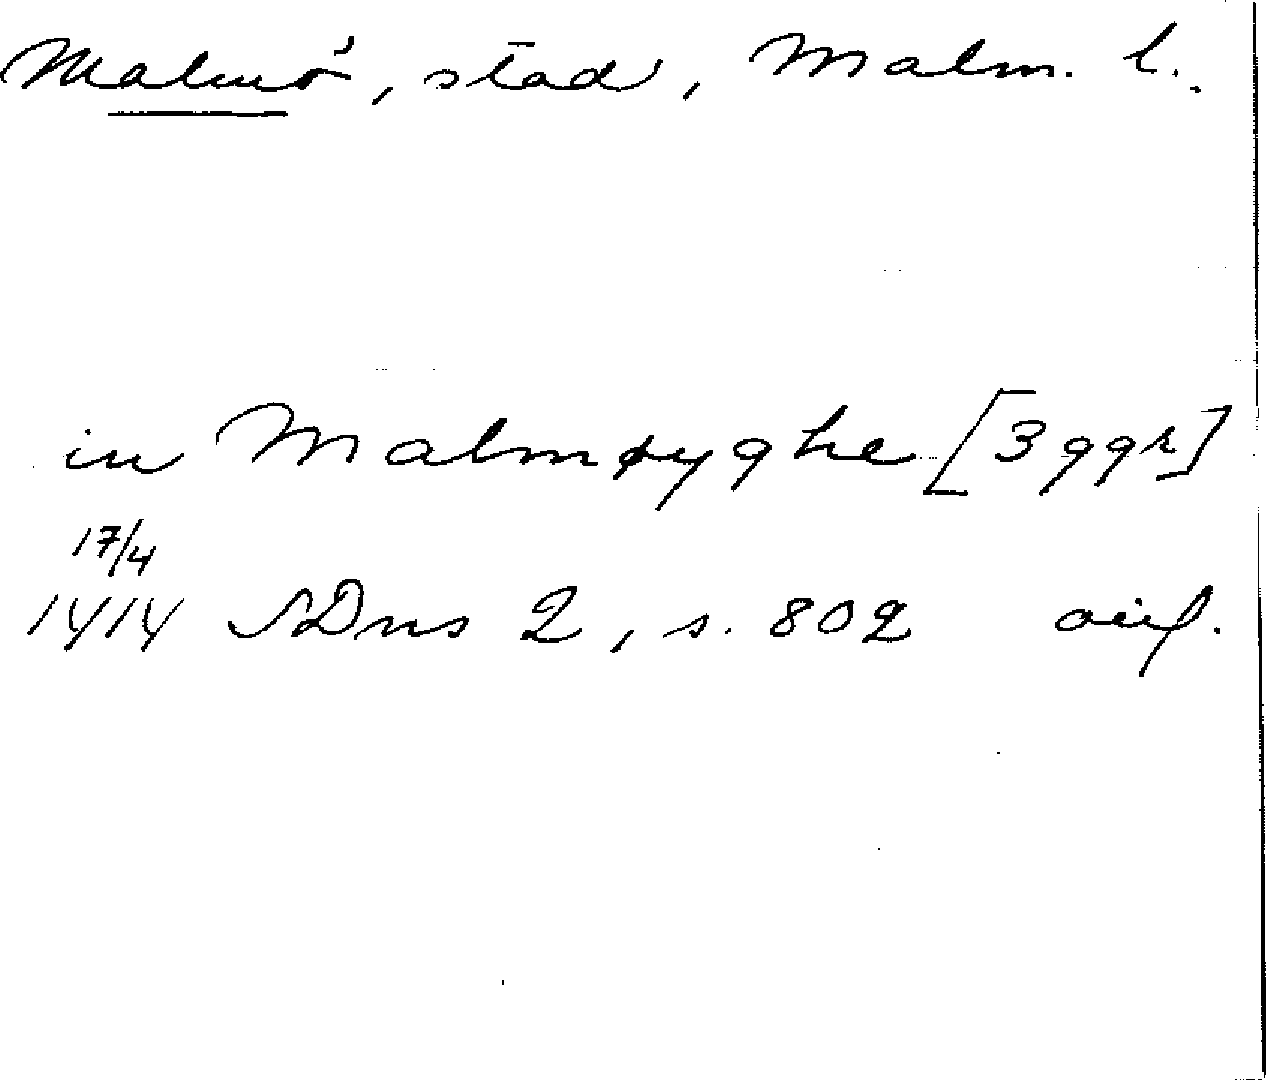 Malmö, stad, Malm. l.
in Malmøyghe [3 ggr]
17/4
1414 SDns 2, s. 802 avs.